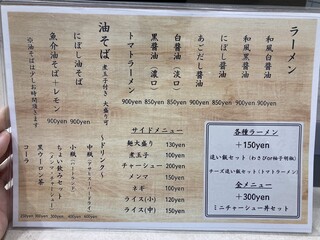 ラーメン
和風白醤油 900yen
和風黒醤油 900yen
にぼし醤油 900yen
あごだし醤油 900yen
白醤油（淡口） 850yen
黒醤油（濃口） 850yen
トマトラーメン 900yen
油そば 煮玉子付き 大盛り可
にぼし油そば 900yen
魚介油そば＋レモン 900yen
※油そばは少しお時間頂きます
サイドメニュー
麺大盛り 130yen
煮玉子 100yen
チャーシュー 200yen
メンマ 150yen
ネギ 100yen
ライス(小) 120yen
ライス(中) 150yen
～ドリンク～
中瓶
小瓶
ちょい飲みセット
黒ウーロン茶
コーラ
各種ラーメン
＋150yen
追い飯セット（わさびor柚子胡椒）
チーズ追い飯セット（トマトラーメン）
全メニュー
＋300yen
ミニチャーシュー丼セット